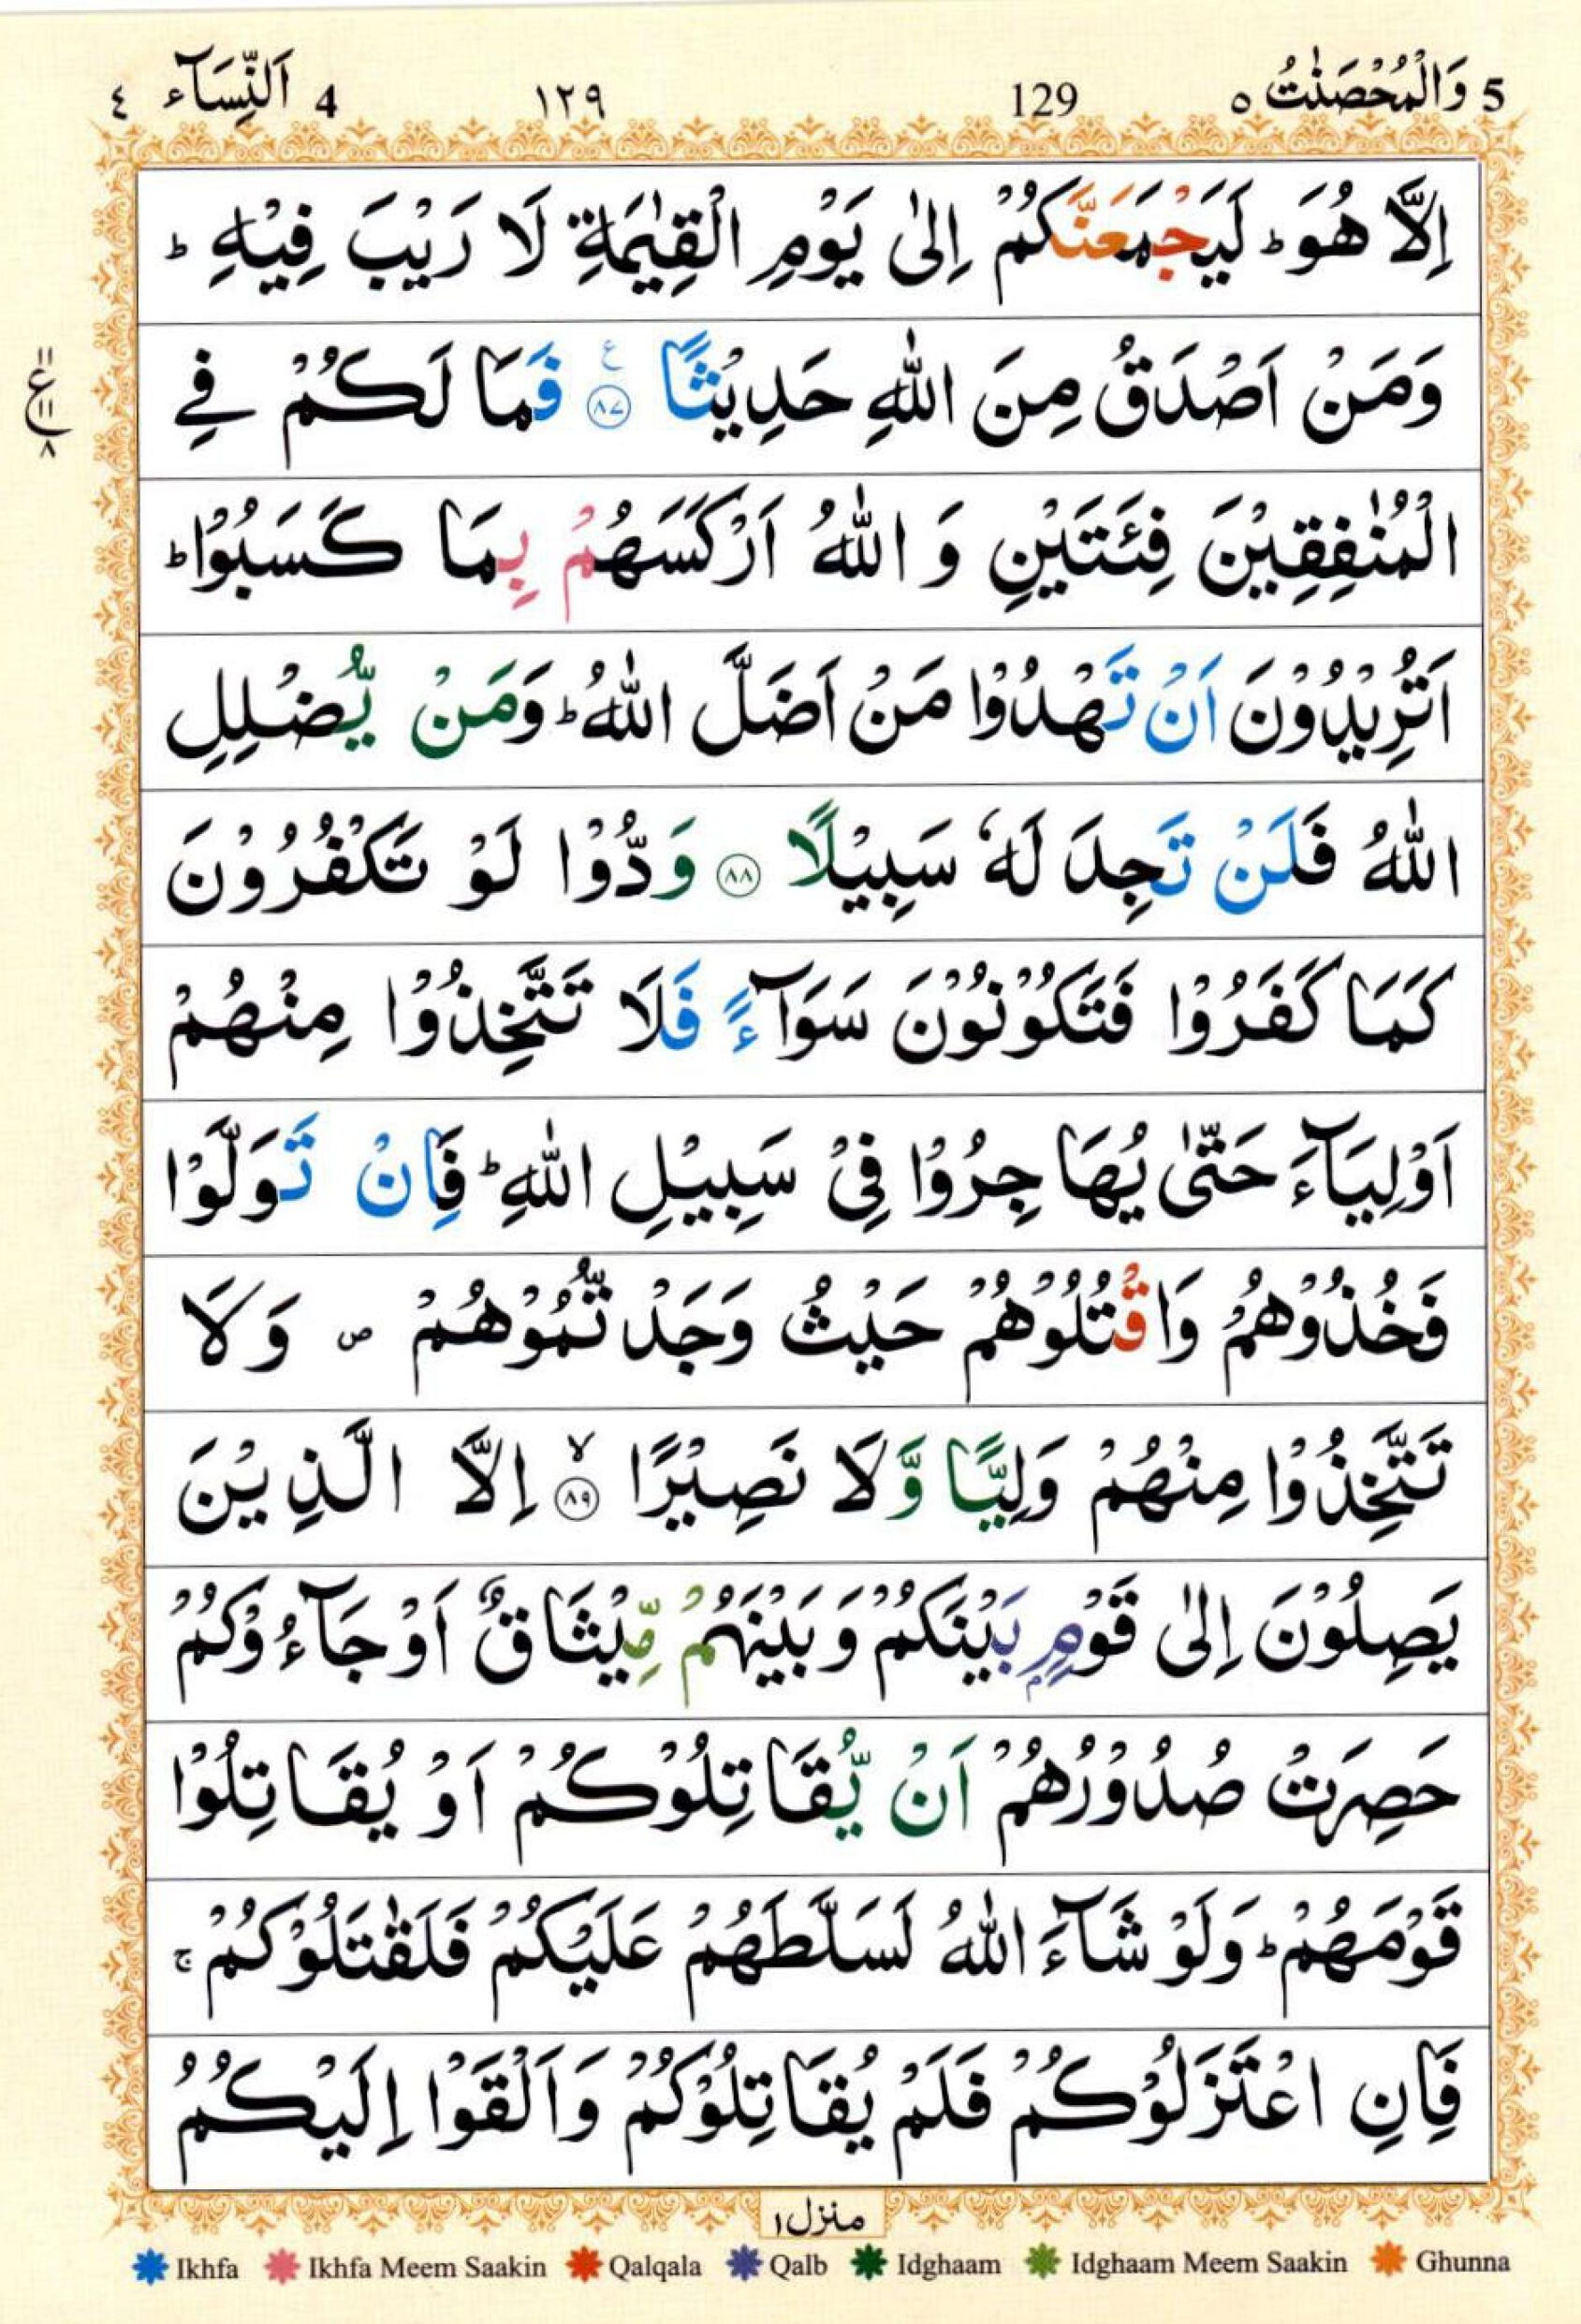 5 وَالْمُحْصَنٰتُ ٥ 129 ١٢٩ 4 اَلنِّسَآء ٤
اِلَّا هُوَ ؕ لَيَجْمَعَنَّكُمْ اِلٰى يَوْمِ الْقِيٰمَةِ لَا رَيْبَ فِيْهِ ؕ
وَمَنْ اَصْدَقُ مِنَ اللّٰهِ حَدِيْثًا ۧ ﴿٨٧﴾ فَمَا لَكُمْ فِي
الْمُنٰفِقِيْنَ فِئَتَيْنِ وَ اللّٰهُ اَرْكَسَهُمْ بِمَا كَسَبُوْا ؕ
اَتُرِيْدُوْنَ اَنْ تَهْدُوْا مَنْ اَضَلَّ اللّٰهُ ؕ وَمَنْ يُّضْلِلِ
اللّٰهُ فَلَنْ تَجِدَ لَهٗ سَبِيْلًا ﴿٨٨﴾ وَدُّوْا لَوْ تَكْفُرُوْنَ
كَمَا كَفَرُوْا فَتَكُوْنُوْنَ سَوَآءً فَلَا تَتَّخِذُوْا مِنْهُمْ
اَوْلِيَآءَ حَتّٰى يُهَاجِرُوْا فِيْ سَبِيْلِ اللّٰهِ ؕ فَاِنْ تَوَلَّوْا
فَخُذُوْهُمْ وَاقْتُلُوْهُمْ حَيْثُ وَجَدْتُّمُوْهُمْ ۪ وَلَا
تَتَّخِذُوْا مِنْهُمْ وَلِيًّا وَّلَا نَصِيْرًا ۙ ﴿٨٩﴾ اِلَّا الَّذِيْنَ
يَصِلُوْنَ اِلٰى قَوْمٍۭ بَيْنَكُمْ وَبَيْنَهُمْ مِّيْثَاقٌ اَوْ جَآءُوْكُمْ
حَصِرَتْ صُدُوْرُهُمْ اَنْ يُّقَاتِلُوْكُمْ اَوْ يُقَاتِلُوْا
قَوْمَهُمْ ؕ وَلَوْ شَآءَ اللّٰهُ لَسَلَّطَهُمْ عَلَيْكُمْ فَلَقٰتَلُوْكُمْ ۚ
فَاِنِ اعْتَزَلُوْكُمْ فَلَمْ يُقَاتِلُوْكُمْ وَاَلْقَوْا اِلَيْكُمُ
١١
ع
١١
٨
منزل ١
Ikhfa Ikhfa Meem Saakin Qalqala Qalb Idghaam Idghaam Meem Saakin Ghunna